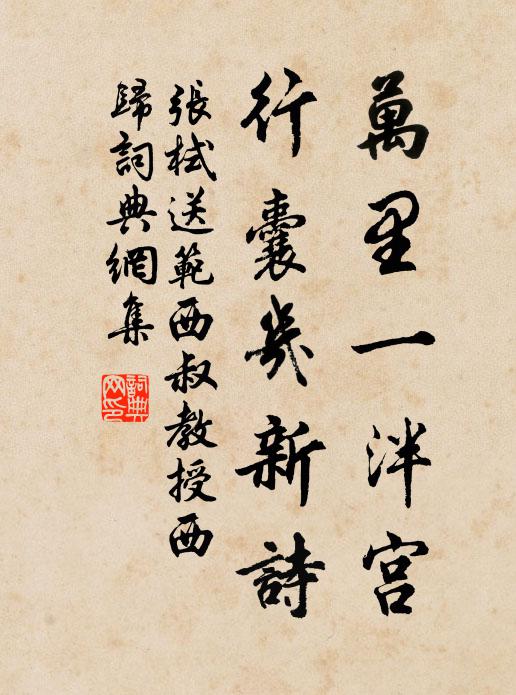 萬里一泮宮
行囊幾新詩
張栻送範西叔教授西
歸詞典網集
詞典
网印